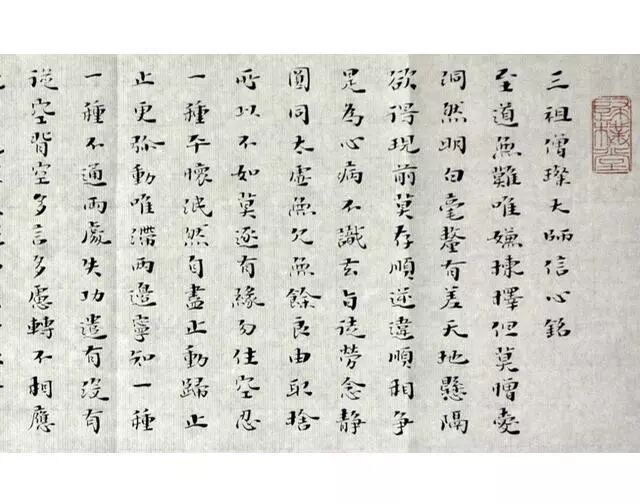 三祖僧璨大師信心銘
至道無難唯嫌揀擇但莫憎愛
洞然明白毫釐有差天地懸隔
欲得現前莫存順逆違順相争
是為心病不識玄旨徒勞念静
圓同太虛無欠無餘良由取捨
所以不如莫逐有緣勿住空忍
一種平懷泯然自盡止動歸止
止更弥動唯滞兩邊寧知一種
一種不通兩處失功遣有没有
從空背空多言多慮轉不相應